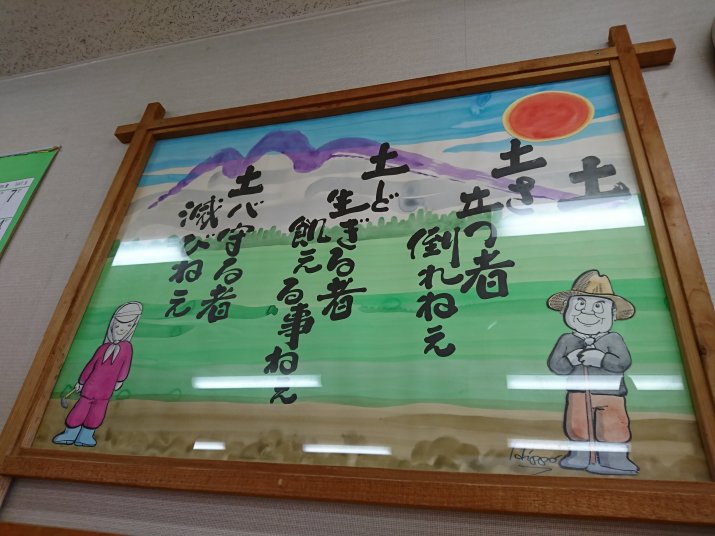 土
土さ
立つ者
倒れねえ
土ど
生ぎる者
飢える事ねえ
土バ守る者
滅びねえ